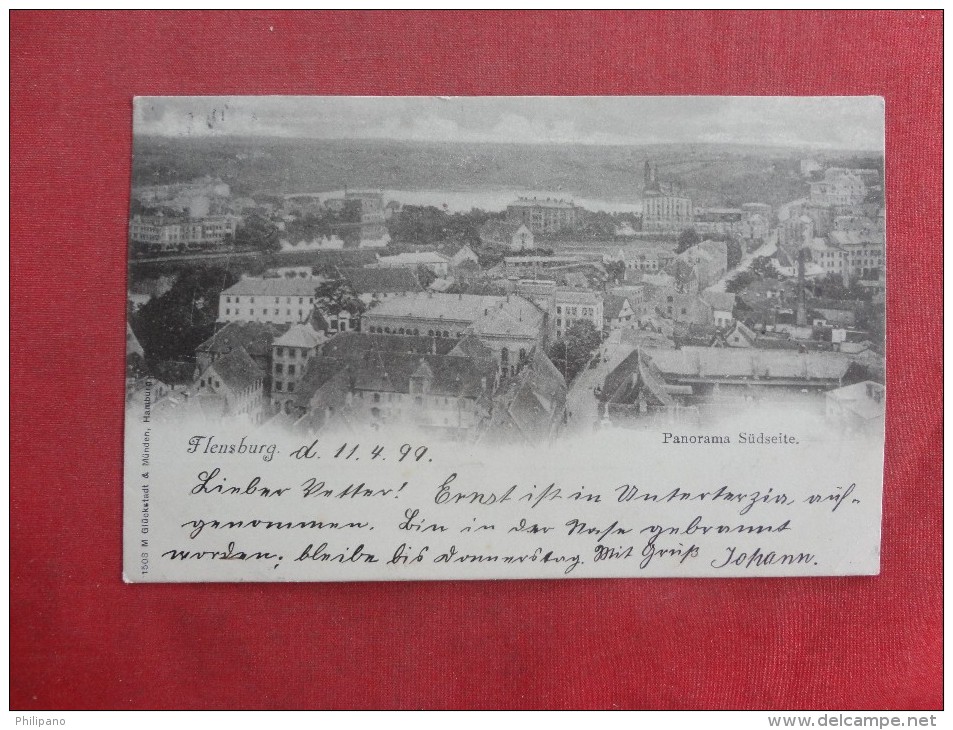 Panorama Südseite.
Flensburg. d. 11.4.99.
Lieber Vetter! Ernst ist in Unterterzia auf=
genommen. Bin in der Nase gebrannt
worden; bleibe bis Donnerstag. Mit Gruß Johann.
1503 M Glückstadt & Münden, Hamburg
Philipano
www.delcampe.net